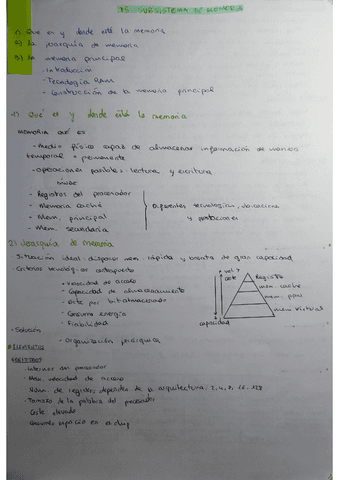 T5. SUBSISTEMA DE MEMORIA
1) Que es y donde está la memoria
2) La jerarquia de memoria
3) La memoria principal
- Introducción
- Tecnología RAM
- Construcción de la memoria principal
1) Qué es y donde está la memoria
MEMORIA qué es
- Medio físico capaz de almacenar información de manera
temporal o permanente
- operaciones posibles, lectura y escritura
DONDE
- Registros del procesador
- Memoria caché
- Mem. principal
- Mem. secundaria
Diferentes tecnologías, ubicaciones
y prestaciones
2) Jerarquía de memoria
Situación ideal disponer mem. rápida y barata de gran capacidad
Criterios tecnológicos contrapuesto
- Velocidad de acceso
- Capacidad de almacenamiento
- Coste por bit almacenado
- Consumo energía
- Fiabilidad
vel. y
coste
Registro
mem. caché
mem. ppal
mem virtual
capacidad
- Solución
- Organización jerárquica
ELEMENTOS
REGISTROS
- Internos del procesador
- Max. velocidad de acceso
- Núm. de registros dependiente de la arquitectura: 2, 4, 8, 16, 128
- Tamaño de la palabra del procesador
Coste elevado
Consumo espacio en el chip